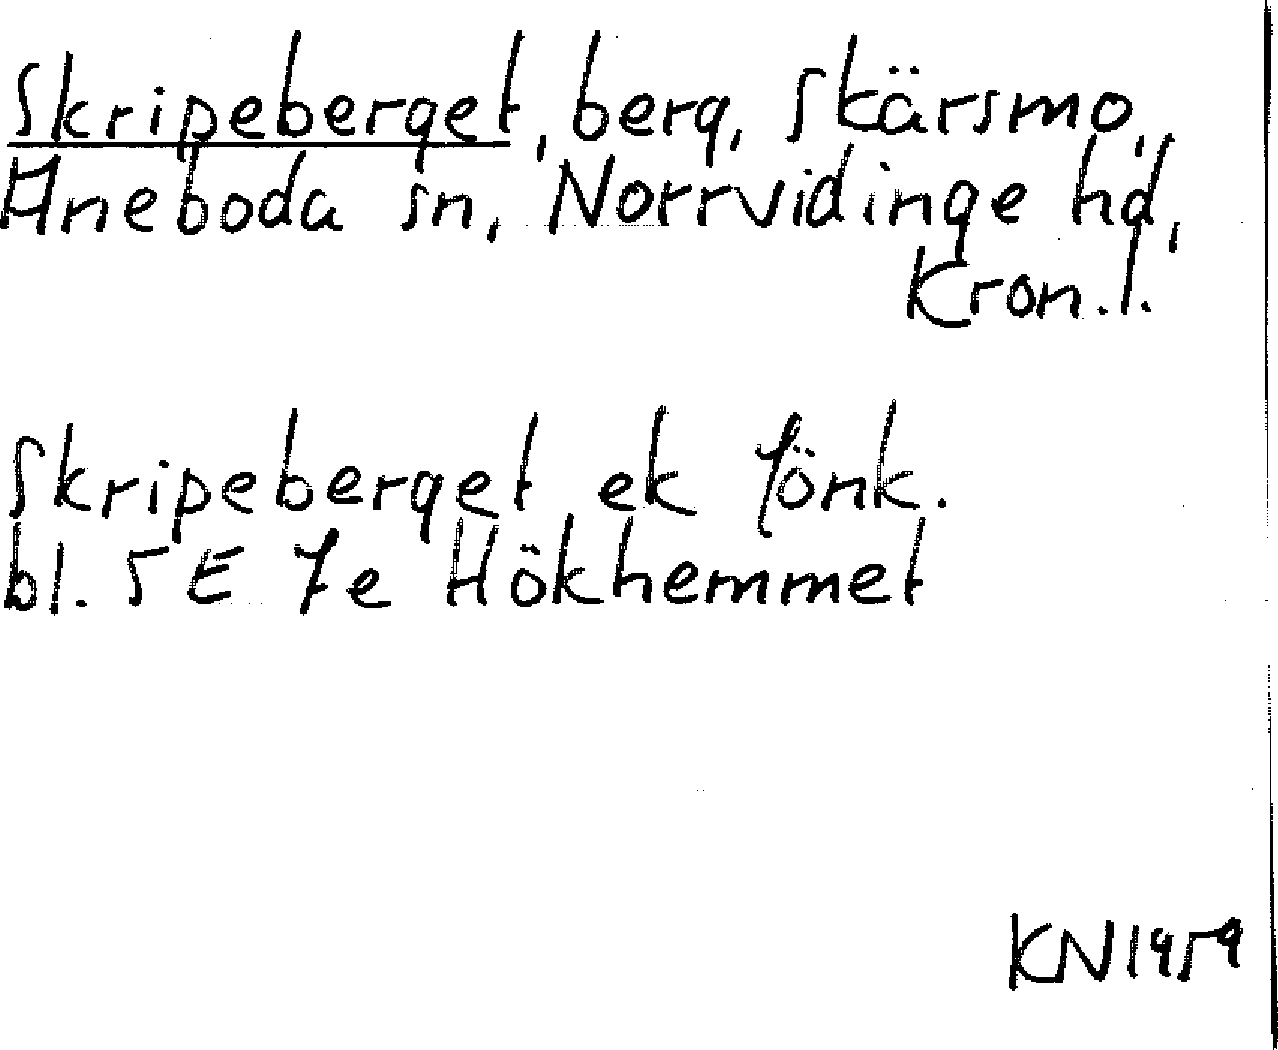 Skripeberget, berg, Skärsmo,
Aneboda sn, Norrvidinge hd,
Kron.l.
Skripeberget ek Jönk.
bl. 5E 7e Hökhemmet
KN 1959